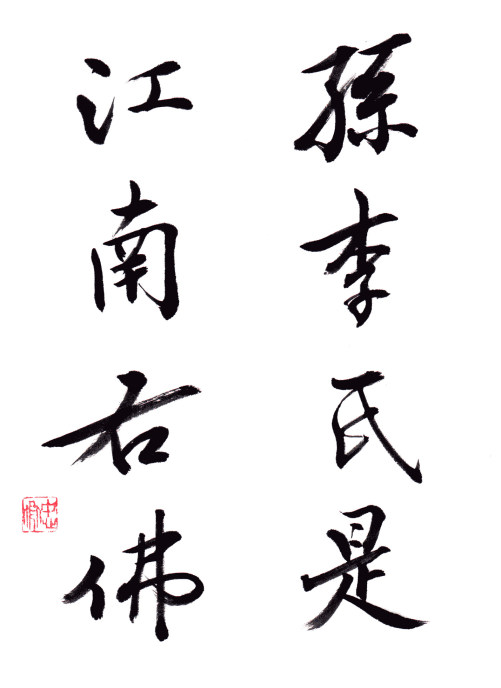 孫李氏是
江南右佛